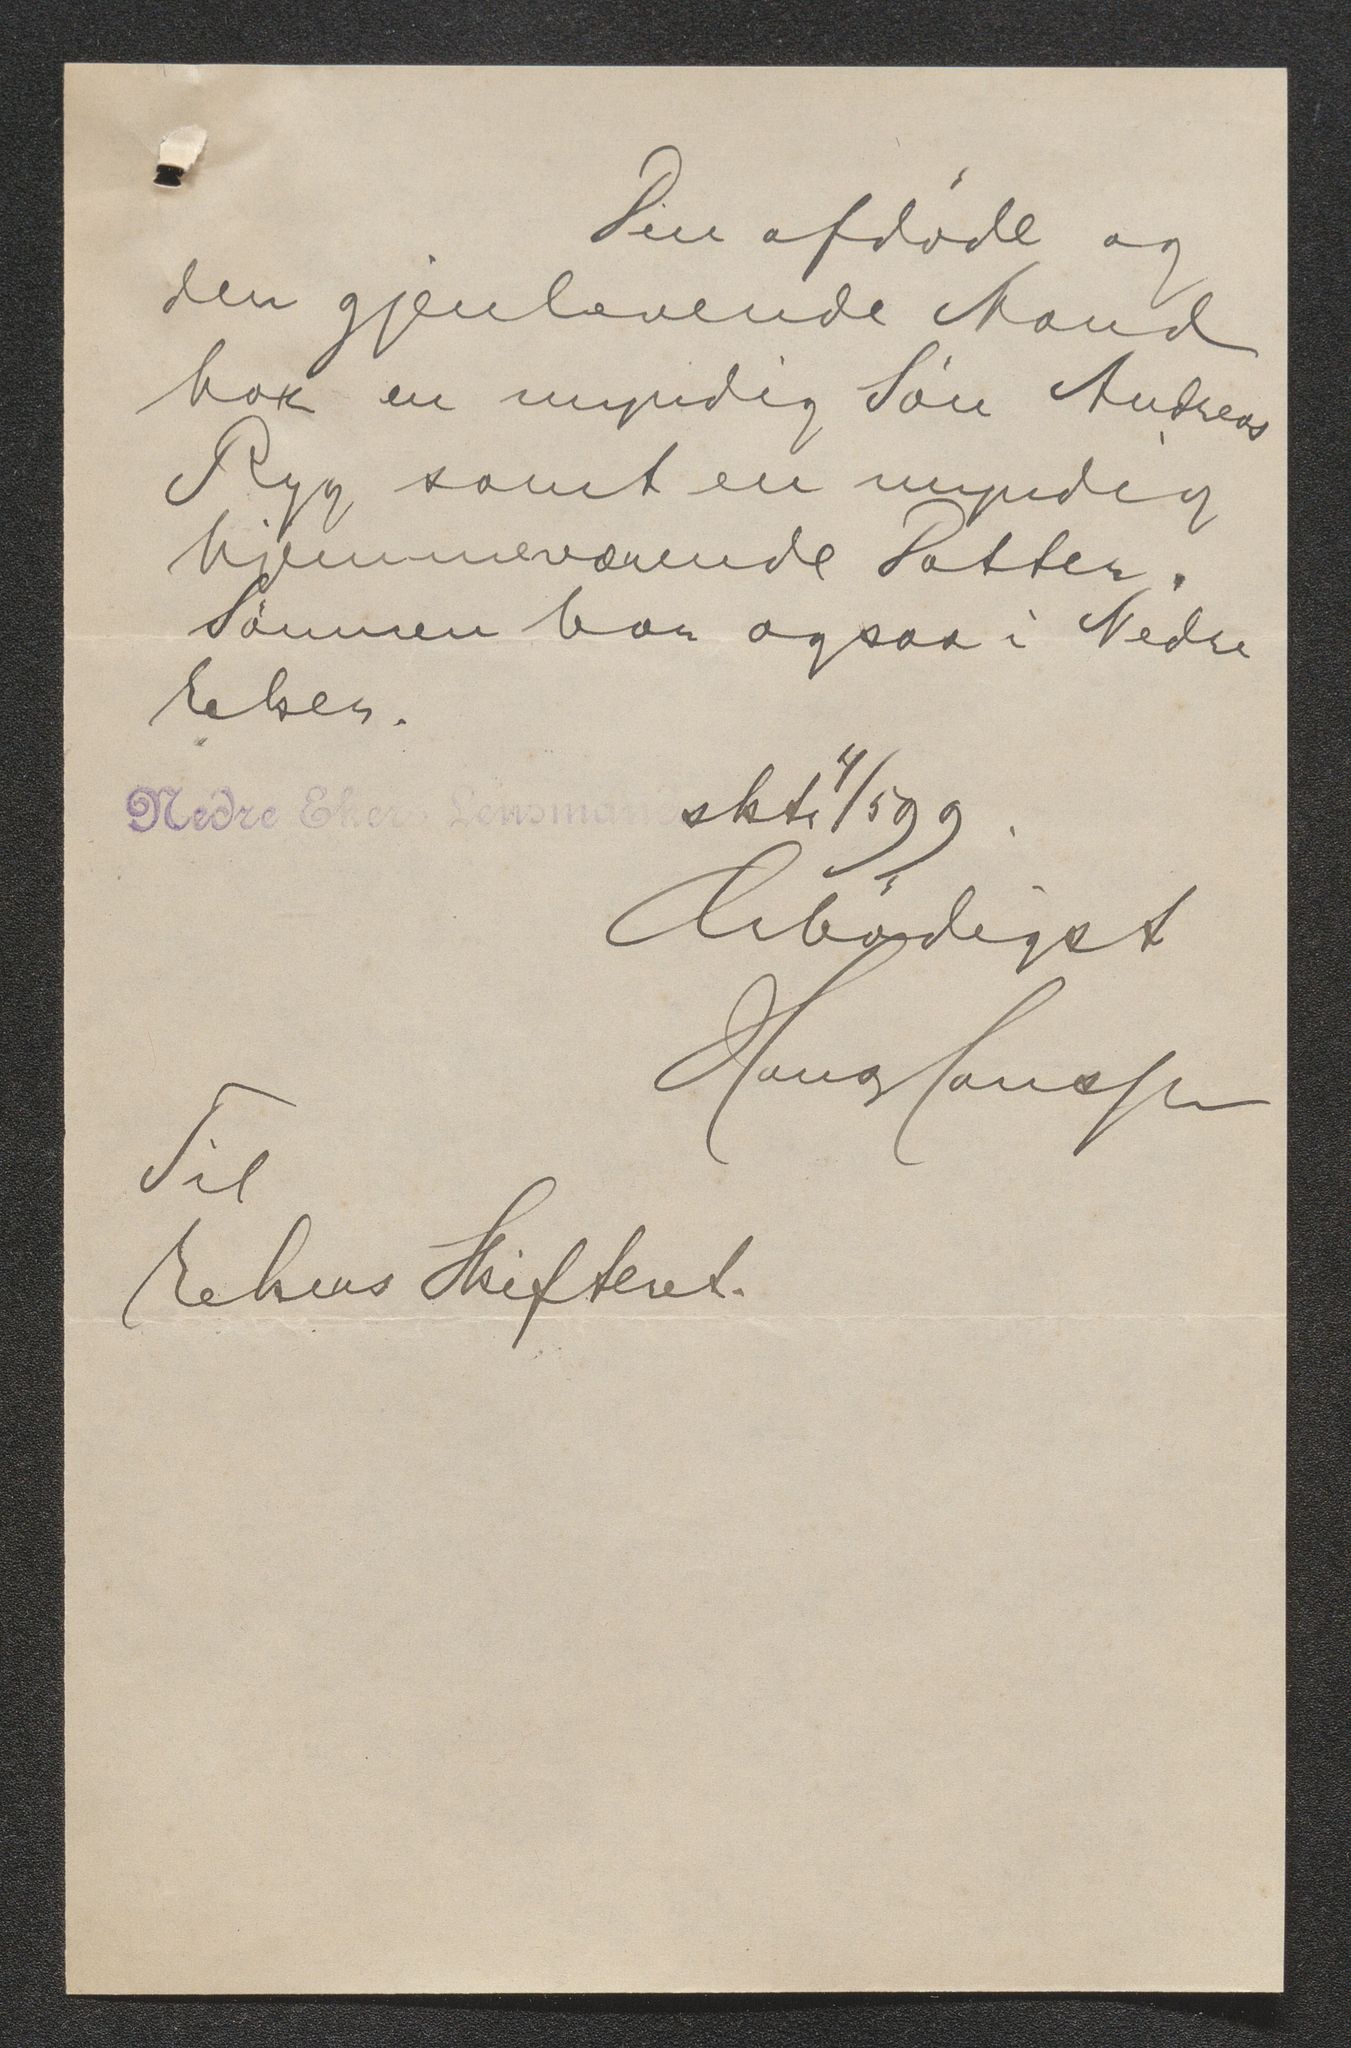 Den afdöde og
den gjenlevende Mand
har en myndig Sön Andreas
Ryg samt en myndig
hjemmeværende Datter.
Sönnen bor ogsaa i Nedre
Eker.
Nedre Eker Lensmand skt. 4/5 99.
Ærbödigst
Hans Hanssen
Til
Ekers Skifteret.